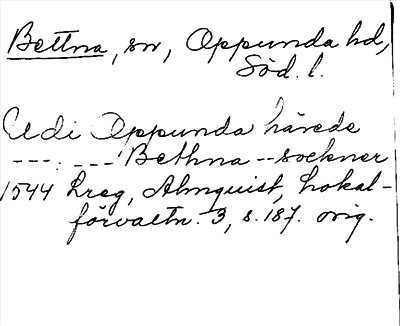 Bettna, sn, Oppunda hd,
Söd. l.
Udi Oppunda härede
---:---'Bethna--sockner
1544 Lreg, Almquist, Lokal-
förvaltn. 3, s. 187. orig.